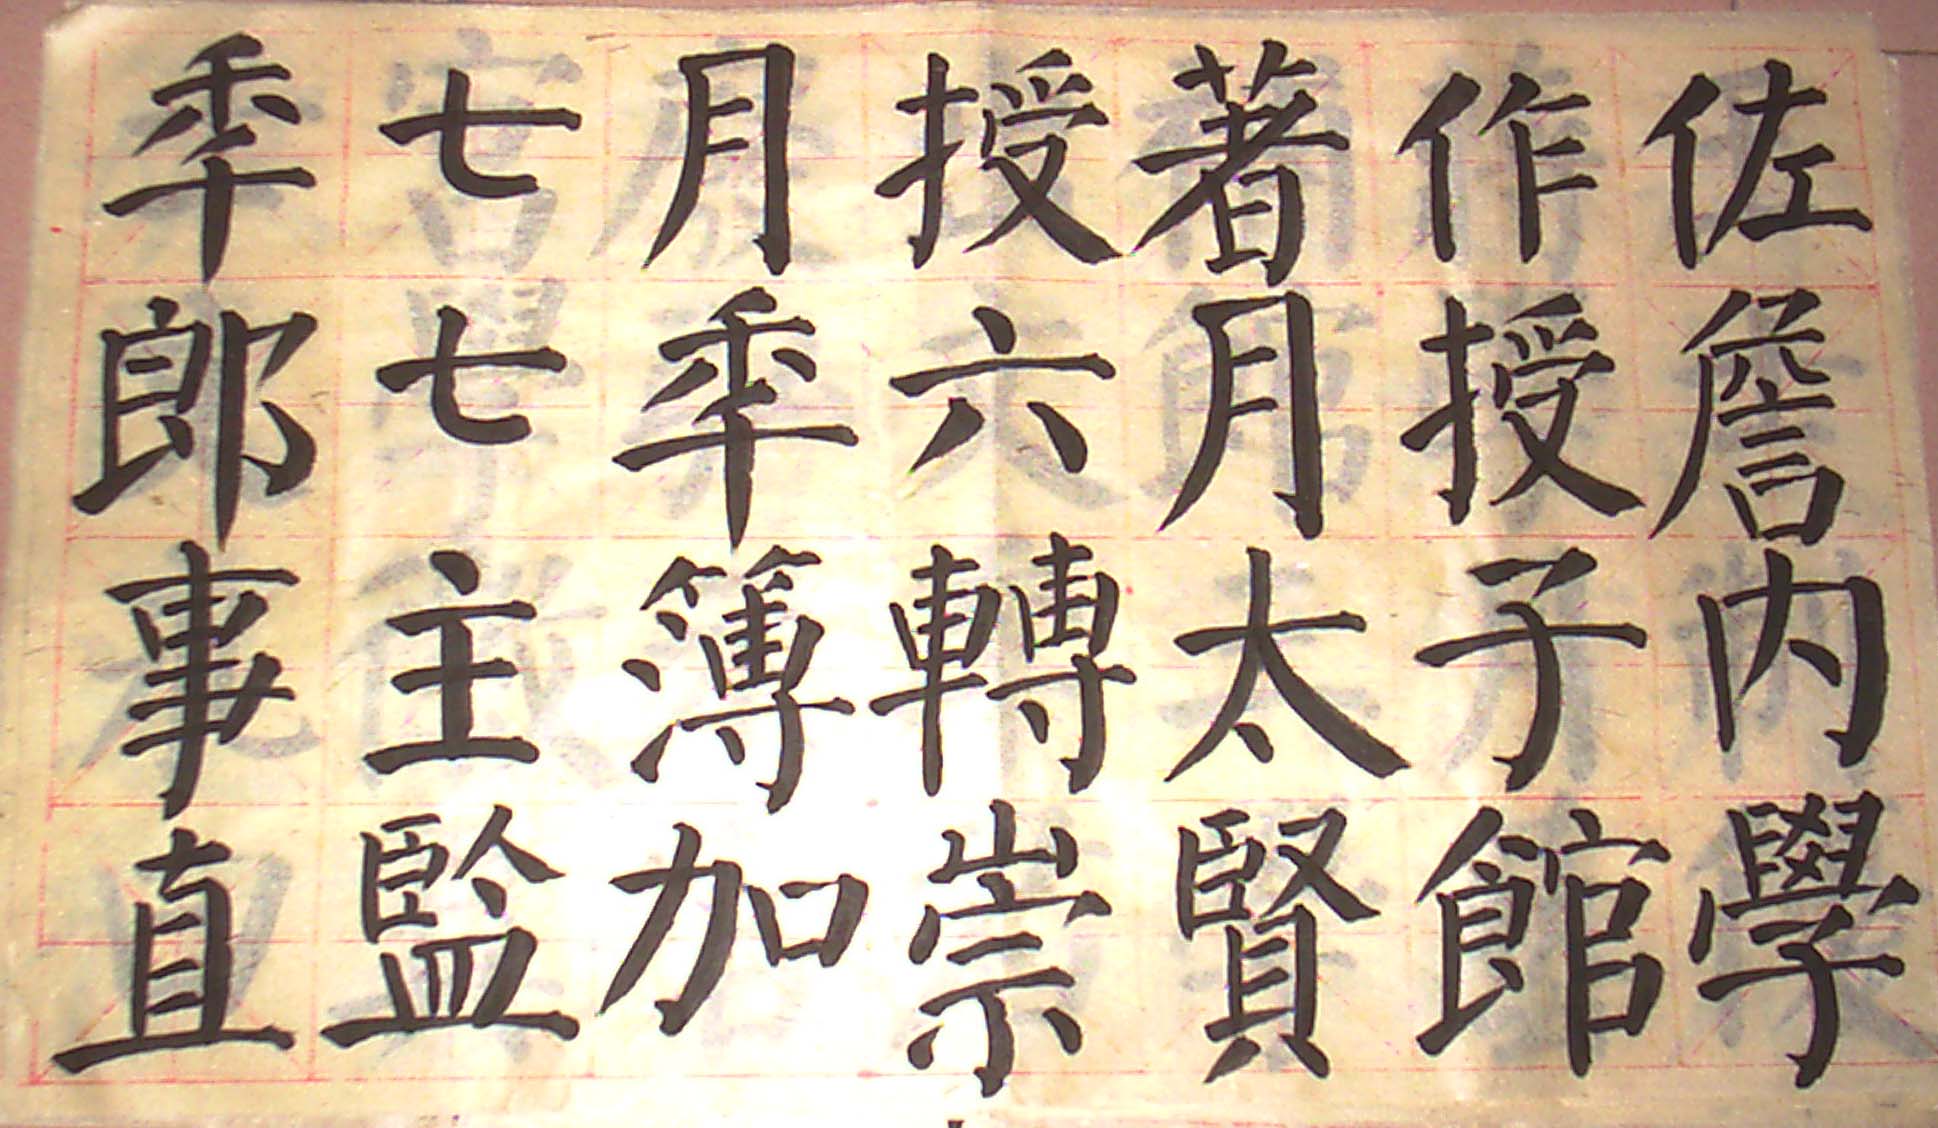 秊七月授著作佐
郎七秊六月授詹
事主簿轉太子内
直監加崇賢館學